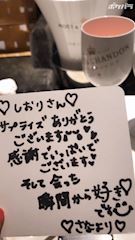 ポケパラ
MOËT &
CHANDON
♡しおりさん♡
サプライズありがとう
ございますから
感謝でいっぱいで
ございます!
そして会った
瞬間から好き
です
♡さなより♡